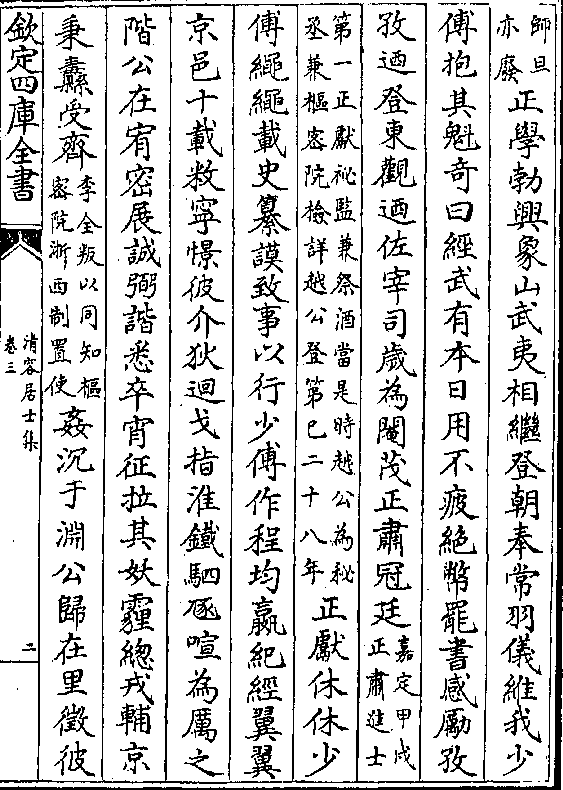 師旦
亦廢
正學勃興象山武夷相繼登朝奉常羽儀維我少
傅抱其魁奇曰經武有本日用不疲絶幣罷書感勵孜
孜迺登東觀迺佐宰司歲為閹茂正肅冠廷
嘉定甲戌
正肅進士
第一正獻祕監兼祭酒當是時越公為秘
丞兼樞密院檢詳越公登第已二十八年
正獻休休少
傅繩繩載史纂謨致事以行少傅作程均嬴紀經翼翼
京邑十載敉寧憬彼介狄迴戈指淮鐵駟豗喧為厲之
階公在宥密展誠弼諧悉卒宵征拉其妖霾緫戎輔京
秉纛受齊
李全叛以同知樞
密院浙西制置使
姦沉于淵公歸在里徵彼
欽定四庫全書
清容居士集
卷三
二